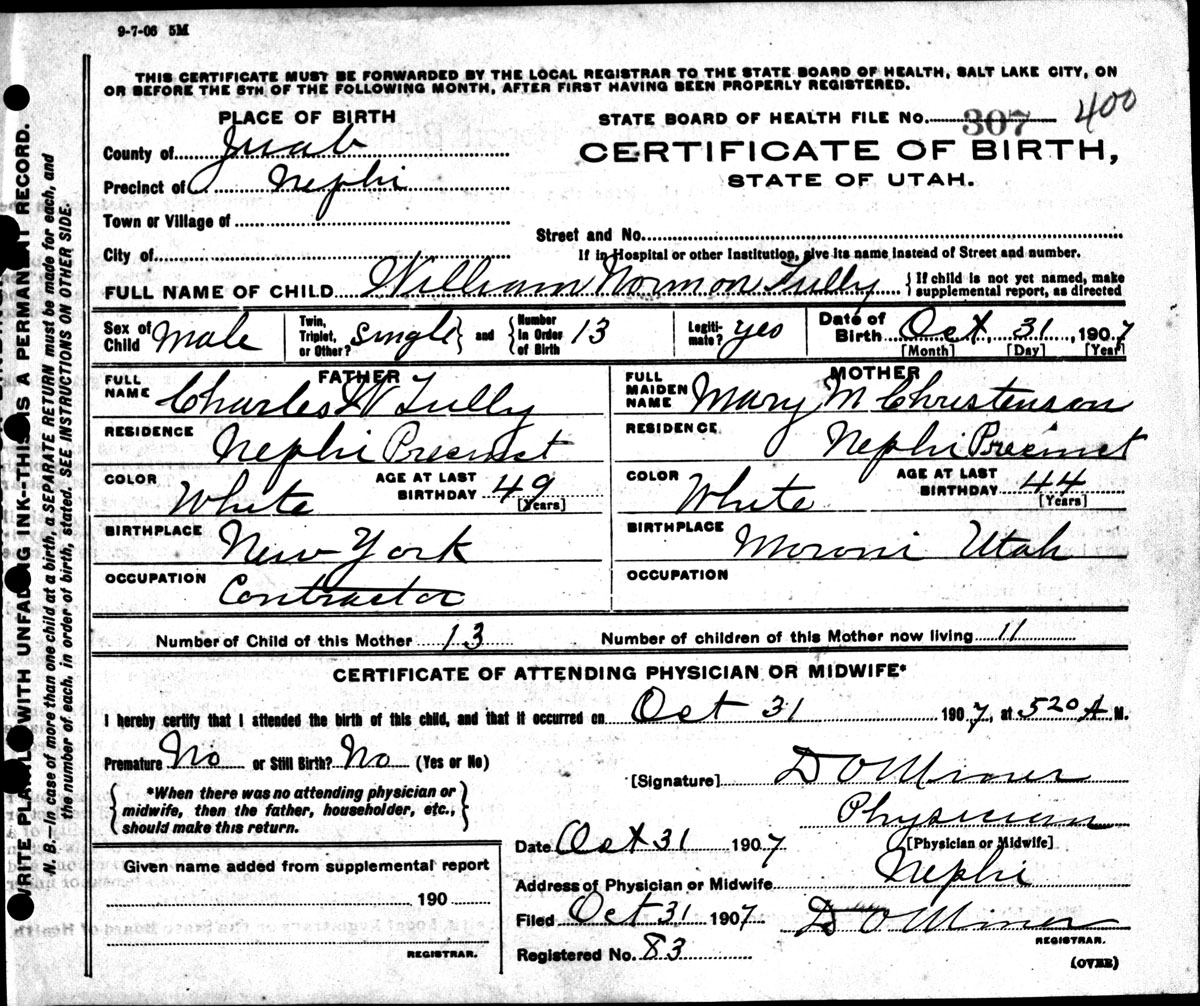 9-7-06 5M
THIS CERTIFICATE MUST BE FORWARDED BY THE LOCAL REGISTRAR TO THE STATE BOARD OF HEALTH, SALT LAKE CITY, ON
OR BEFORE THE 5TH OF THE FOLLOWING MONTH, AFTER FIRST HAVING BEEN PROPERLY REGISTERED.
PLACE OF BIRTH
County of Juab
Precinct of Nephi
Town or Village of
City of
STATE BOARD OF HEALTH FILE NO. 307 400
CERTIFICATE OF BIRTH,
STATE OF UTAH.
Street and No.
If in Hospital or other Institution, give its name instead of Street and number.
FULL NAME OF CHILD William Normon Tully { If child is not yet named, make
supplemental report, as directed
Sex of Child Male
Twin, Triplet, or Other? Single } and { Number in Order of Birth 13
Legitimate? yes
Date of Birth Oct, 31, 1907
[Month] [Day] [Year]
FATHER
FULL NAME Charles W Tully
RESIDENCE Nephi Precinct
COLOR White AGE AT LAST BIRTHDAY 49
[Years]
BIRTHPLACE New York
OCCUPATION Contractor
MOTHER
FULL MAIDEN NAME Mary M Christenson
RESIDENCE Nephi Precinct
COLOR White AGE AT LAST BIRTHDAY 44
[Years]
BIRTHPLACE Moroni Utah
OCCUPATION
Number of Child of this Mother 13 Number of children of this Mother now living 11
CERTIFICATE OF ATTENDING PHYSICIAN OR MIDWIFE*
I hereby certify that I attended the birth of this child, and that it occurred on Oct 31 1907, at 520 A M.
Premature No or Still Birth? No (Yes or No)
{ *When there was no attending physician or
midwife, then the father, householder, etc.,
should make this return. }
[Signature] D O Miner
Physician
[Physician or Midwife]
Date Oct 31 1907
Address of Physician or Midwife Nephi
Filed Oct 31 1907 D O Miner
REGISTRAR.
Registered No. 83
(OVER)
Given name added from supplemental report
190
REGISTRAR.
WRITE PLAINLY WITH UNFADING INK--THIS IS A PERMANENT RECORD.
N. B.—In case of more than one child at a birth, a SEPARATE RETURN must be made for each, and
the number of each, in order of birth, stated. SEE INSTRUCTIONS ON OTHER SIDE.